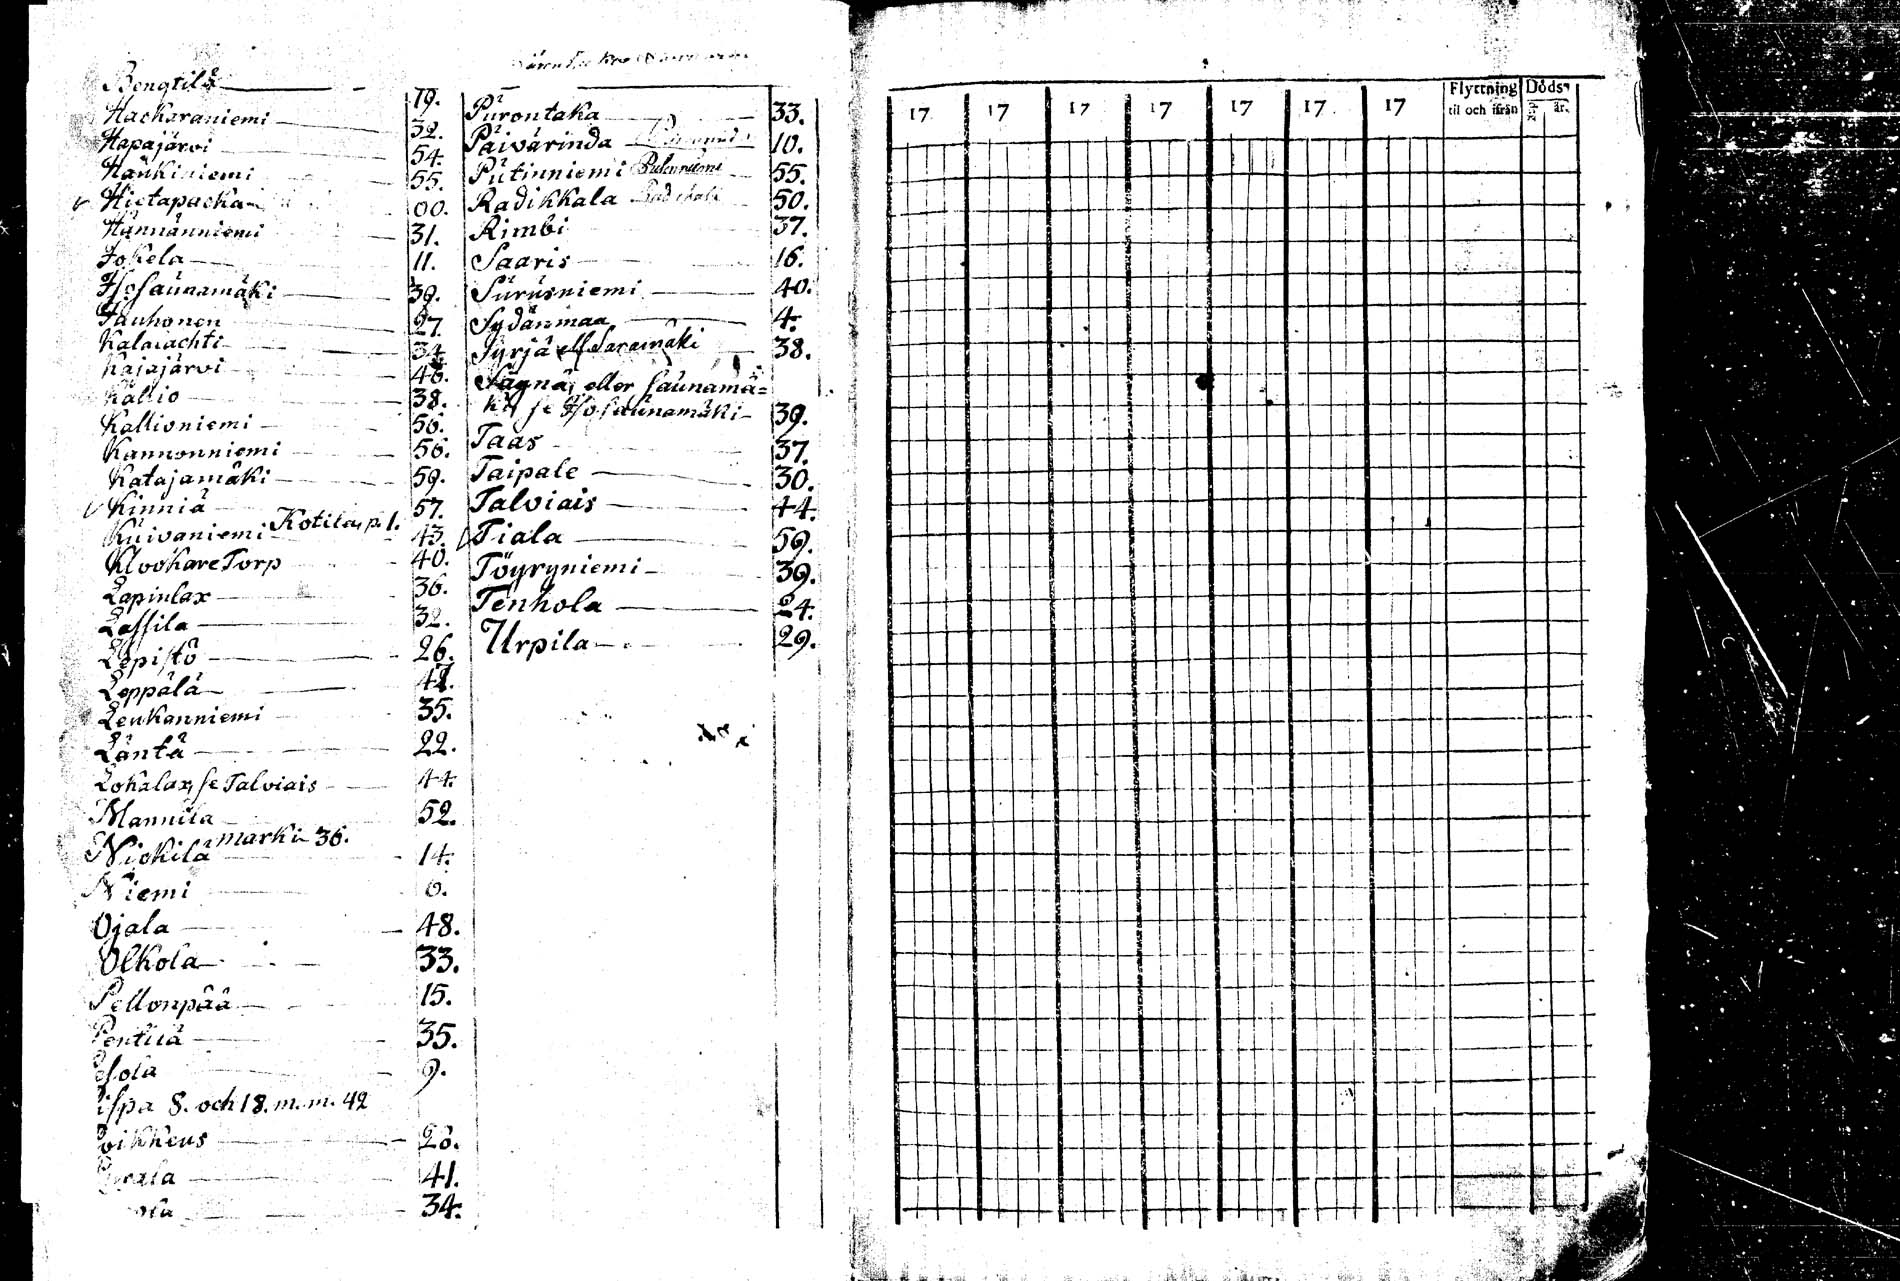 Bengtilä 19.
Hackaraniemi 32.
Hapajärvi 54.
Haukiniemi 55.
Hietapacka 60.
Hännänniemi 31.
Jokela 11.
Iso saunamäki 39.
Jauhonen 27.
Kalalachti 34.
Kajajärvi 46.
Kallio 38.
Kallioniemi 56.
Kannonniemi 56.
Katajamäki 59.
Kinniä 57.
Kotila, p. 1.
Kuivaniemi 43.
Klockare Torp 40.
Lapinlax 36.
Lassila 32.
Lepistö 26.
Leppälä 47.
Leukanniemi 35.
Läntä 22.
Lohalax, se Talviais 44.
Mannila 52.
marki 36.
Nickilä 14.
Niemi 6.
Ojala 48.
Olkola 33.
Pellonpää 15.
Penttilä 35.
Pesola 9.
Pispa 8. och 18. m. m. 42
Poikkeus 28.
41.
34.
Purontaka 33.
Päivärinda 10.
Putinniemi 55.
Radikkala 50.
Rimbi 37.
Saaris 16.
Surusniemi 40.
Sydänmaa 4.
Syrjä ell Saramäki 38.
Sägnä, eller saunamä=
ki, se Iso saunamäki 39.
Taas 37.
Taipale 30.
Talviais 44.
Tiala 59.
Töyryniemi 39.
Tenhola 24.
Urpila 29.
17 17 17 17 17 17 17 Flyttning Döds-
til och ifrån dag år.